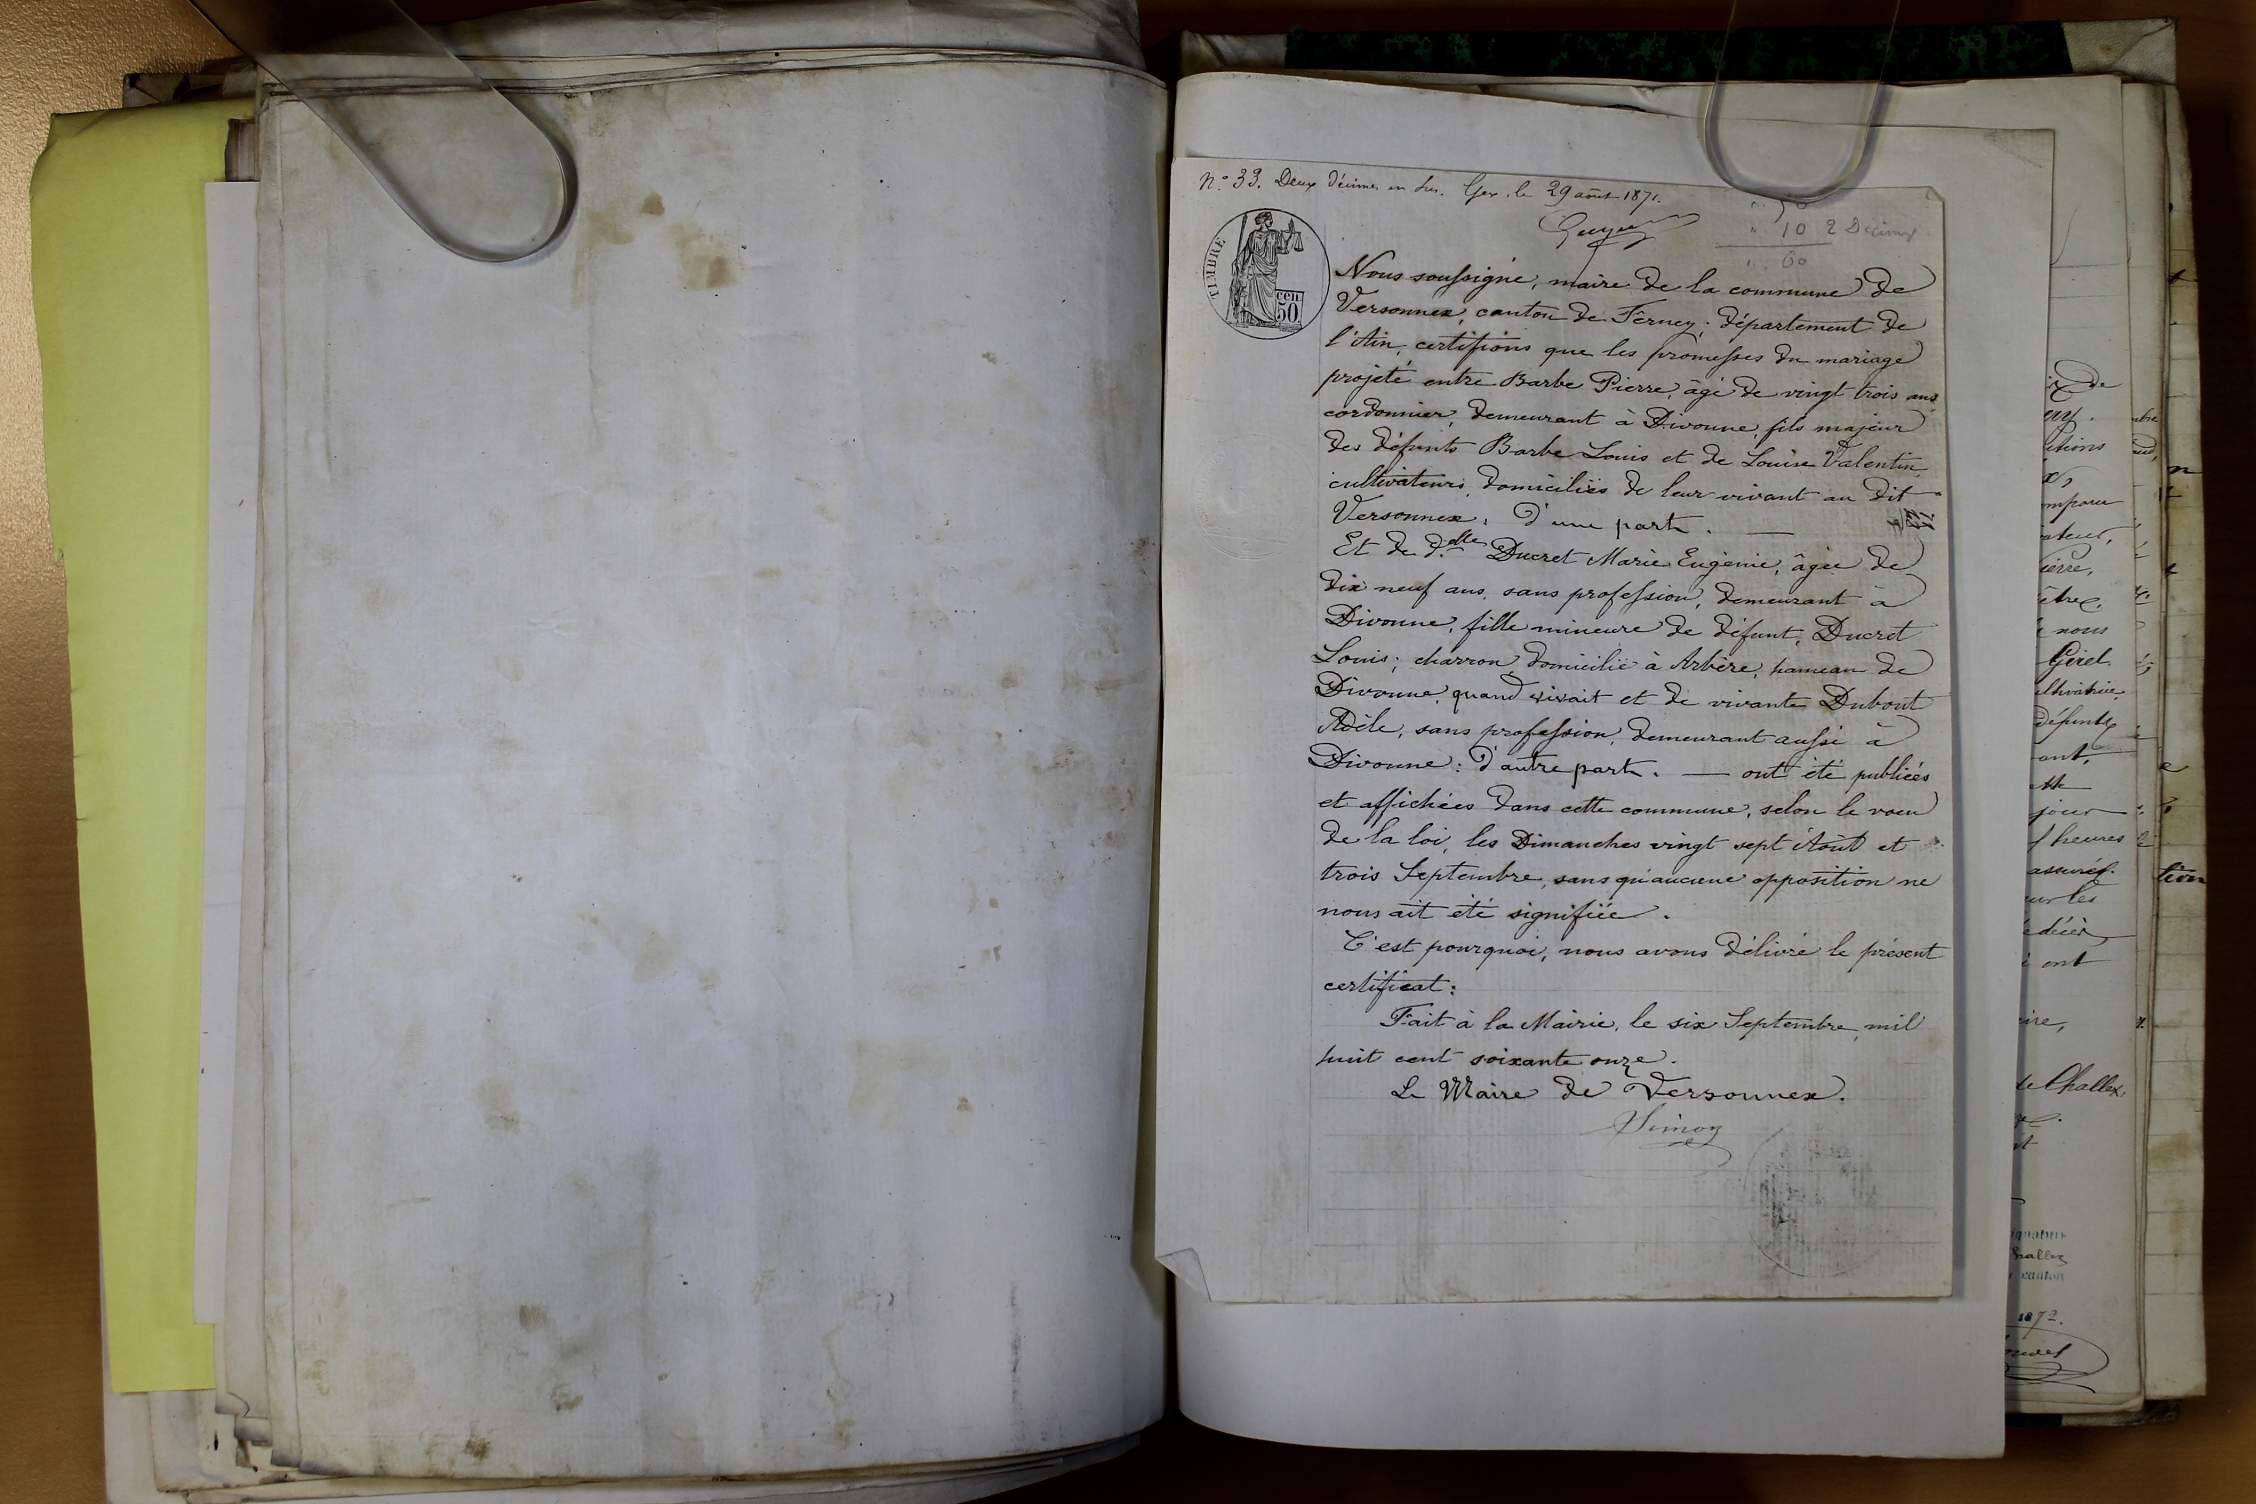 N.° 33. Deux décimes en sus. Gex. le 29 août 1871.
10 2 Décimes
60
TIMBRE
cen.
50
Nous soussigné, maire de la commune de
Versonnex, canton de Ferney, département de
l'Ain, certifions que les promesses du mariage
projeté entre Barbe Pierre, âgé de vingt trois ans
cordonnier, demeurant à Divonne, fils majeur
des défunts Barbe Louis et de Louise Valentin
cultivateurs, domiciliés de leur vivant au dit
Versonnex, d'une part. —
Et de d.elle Ducret Marie Eugénie, âgée de
dix neuf ans, sans profession, demeurant à
Divonne, fille mineure de défunt, Ducret
Louis; charron, domicilié à Arbère, hameau de
Divonne, quand vivait et de vivante Dubout
Adèle, sans profession, demeurant aussi à
Divonne: d'autre part. — ont été publiées
et affichées dans cette commune, selon le voeu
de la loi, les Dimanches vingt sept Août et
trois Septembre, sans qu'aucune opposition ne
nous ait été signifiée.
C'est pourquoi, nous avons délivré le présent
certificat:
Fait à la Mairie, le six Septembre, mil
huit cent soixante onze.
Le Maire de Versonnex.
Simon
nous
Gerel
défunte
jour
heures
assurés
ont
de Challex,
canton
1872.